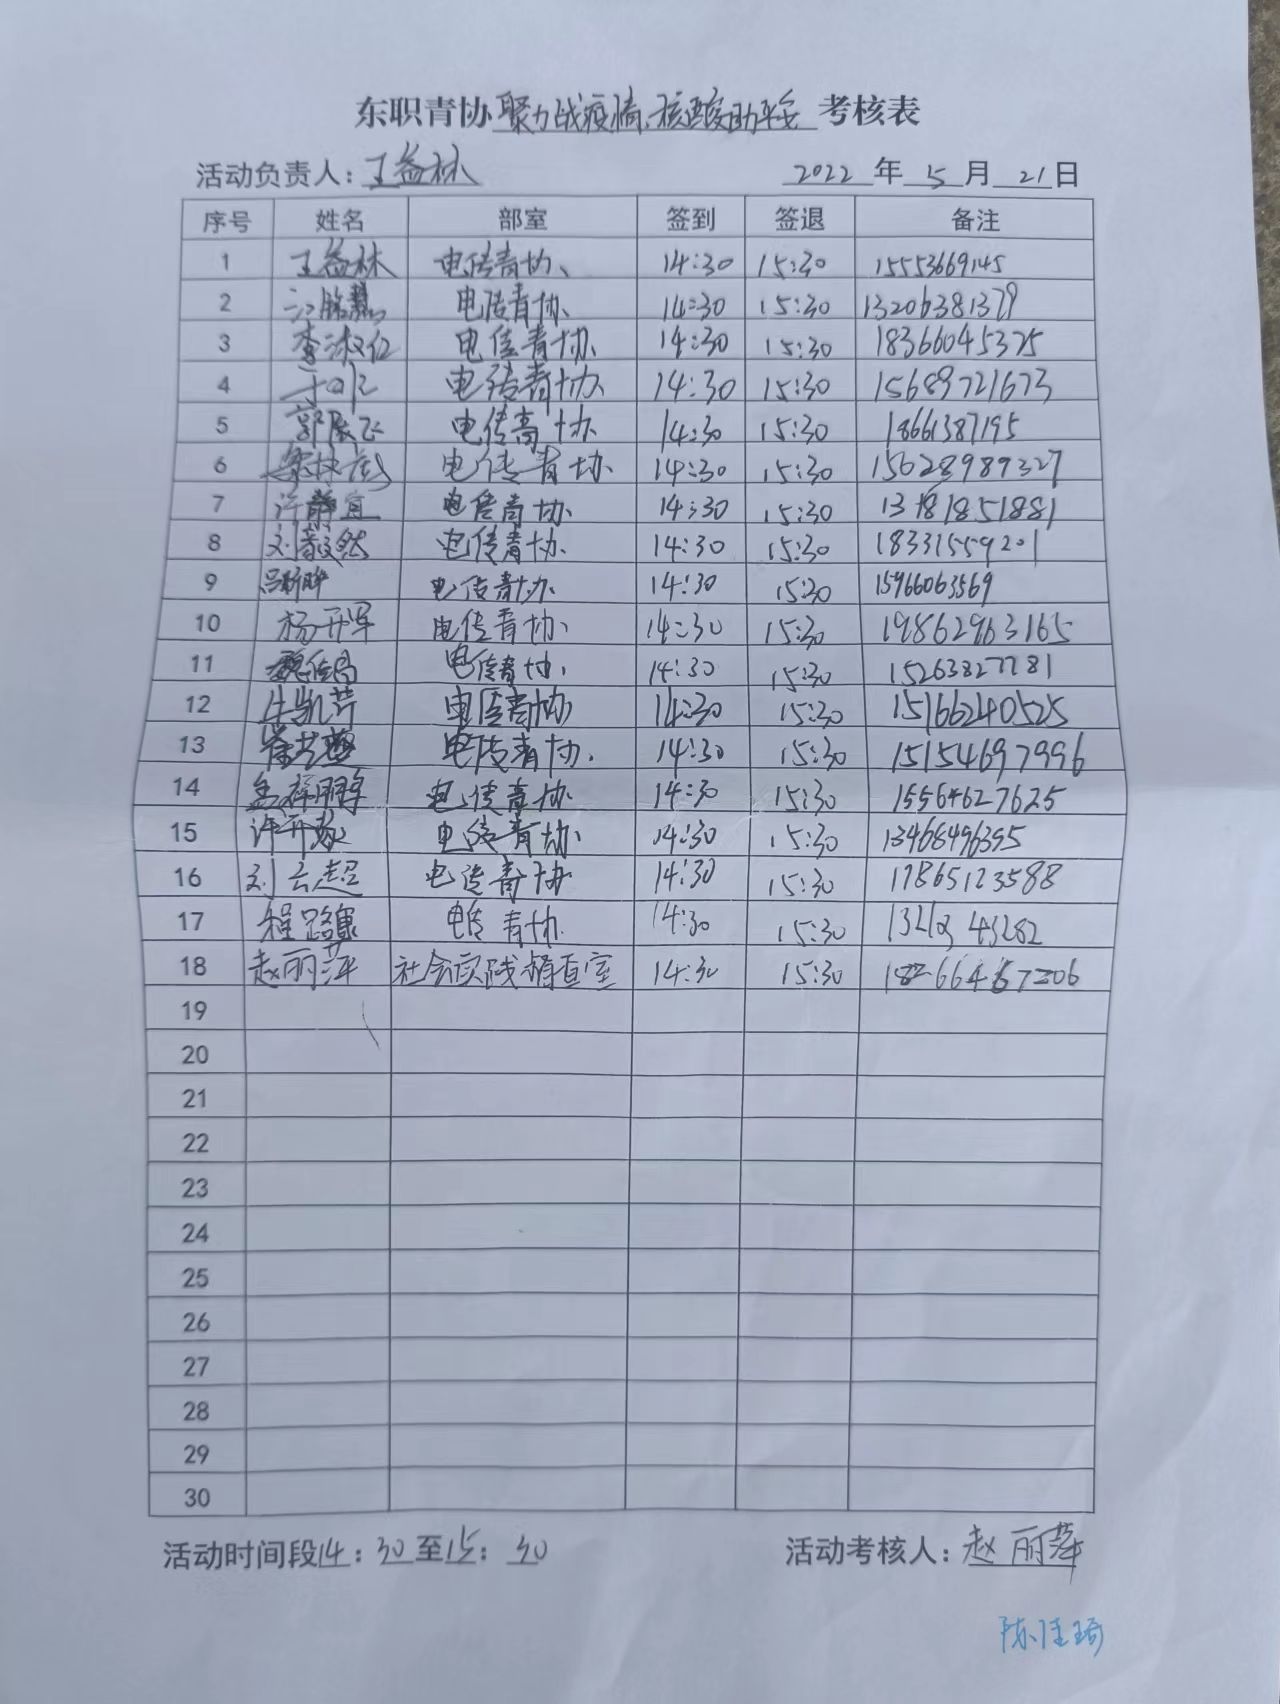 东职青协 聚力战疫情、核酸助平安 考核表
活动负责人：王益林 2022 年 5 月 21 日
序号 姓名 部室 签到 签退 备注
1 王益林 电传青协 14:30 15:30 15553669145
2 电传青协 14:30 15:30 13206381379
3 李淑仪 电信青协 14:30 15:30 18366045375
4 电传青协 14:30 15:30 15689721673
5 电传青协 14:30 15:30 18661387195
6 电传青协 14:30 15:30 15628989327
7 许静宜 电信青协 14:30 15:30 13181851881
8 刘毅然 电传青协 14:30 15:30 18331559201
9 电传青协 14:30 15:30 15966063569
10 杨开军 电传青协 14:30 15:30 19862963165
11 电信青协 14:30 15:30 15263827781
12 牛凯芹 电信青协 14:30 15:30 15166240525
13 电传青协 14:30 15:30 15154697996
14 孟祥鹏 电传青协 14:30 15:30 15564627625
15 电信青协 14:30 15:30 13466496395
16 刘云超 电传青协 14:30 15:30 17865123588
17 程路康 电传青协 14:30 15:30
18 赵丽萍 社会实践稽查室 14:30 15:30
19
20
21
22
23
24
25
26
27
28
29
30
活动时间段 14：30 至 15：30 活动考核人：赵丽萍
陈佳琦